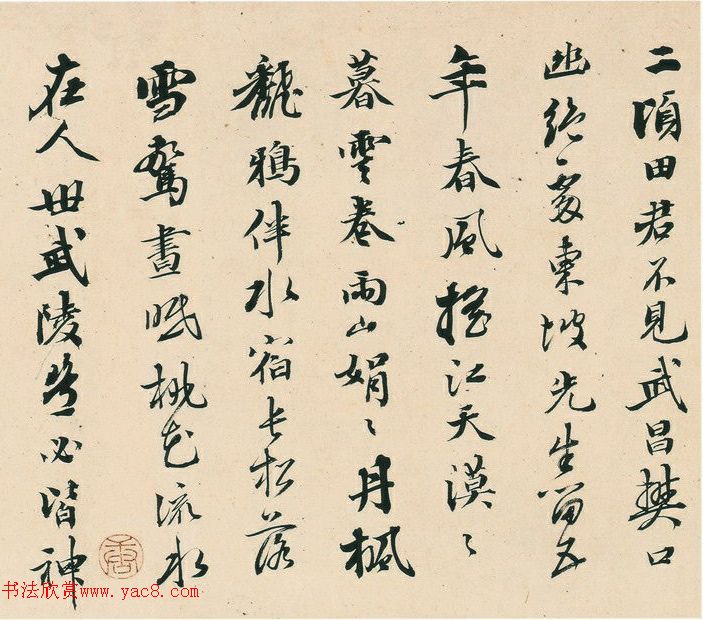 二頃田君不見武昌樊口
幽絶處東坡先生留五
年春風搖江天漠〻
暮雲卷雨山娟〻丹楓
翻鴉伴水宿長松落
雪驚晝眠桃花流水
在人世武陵豈必皆神
书法欣赏www.yac8.com